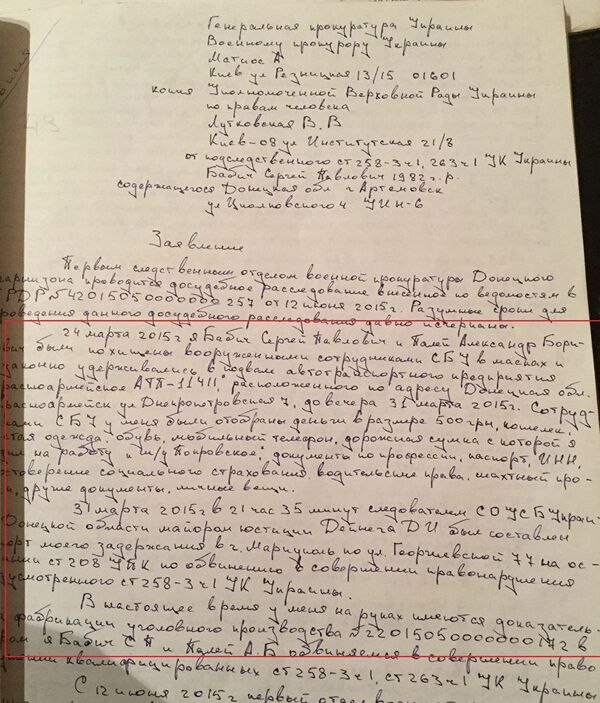 Генеральная прокуратура Украины
Военному прокурору Украины
Матиос А
Киев ул Резницкая 13/15 01601
копия Уполномоченной Верховной Рады Украины
по правам человека
Лутковская В. В
Киев-08 ул Институтская 21/8
от подследственного ст 258-3 ч 1, 263 ч 1 УК Украины
Бабич Сергей Павлович 1982 г.р.
содержащегося Донецкая обл г Артемовск
ул Циолковского 4 УИН-6
Заявление
Первым следственным отделом военной прокуратуры Донецкого
гарнизона проводится досудебное расследование внесенное по ведомостям в
РДР №42015050000000257 от 12 июня 2015г. Разумные сроки для
проведения данного досудебного расследования давно исчерпаны.
24 марта 2015г я Бабич Сергей Павлович и Палей Александр Бори-
вич были похищены вооруженными сотрудниками СБУ в масках и
законно удерживались в подвале автотранспортного предприятия
расноармейское АТП-11411, расположенного по адресу Донецкая обл.
расноармейск ул Днепропетровская 7, до вечера 31 марта 2015г. Сотруд-
ками СБУ у меня были отобраны деньги в размере 500 грн, кошелек,
стая одежда, обувь, мобильный телефон, дорожная сумка с которой я
на работу в г Покровское, документы по профессии, паспорт, ИНН,
остоверение социального страхования, водительские права, шахтный про-
к, другие документы, личные вещи.
31 марта 2015г в 21 час 35 минут следователем СО УСБУкраи-
Донецкой области майором юстиции Дейнега ДИ был составлен
порт моего задержания в г. Мариуполь по ул. Георгиевской 77 на ос-
нии ст 208 УПК по обвинению в совершении правонарушения
усмотренного ст 258-3 ч 1 УК Украины.
В настоящее время у меня на руках имеются доказатель-
фабрикации уголовного производства №22015050000000172 в
ром я Бабич С П и Палей А.Б обвиняемся в совершении право
шении квалифицированных ст 258-3 ч 1, ст 263 ч 1 УК Украины
С 12 июня 2015г первый отдел